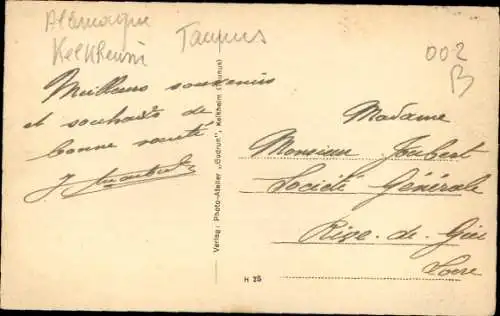 Allemagne
Kelkheim
Taunus
002
B
Meilleurs souvenirs
et souhaits de
bonne santé
Verlag: Photo-Atelier „Gudrun", Kelkheim (Taunus)
Madame
Monsieur Joubert
Société Générale
Rive-de-Gier
Loire
H 25